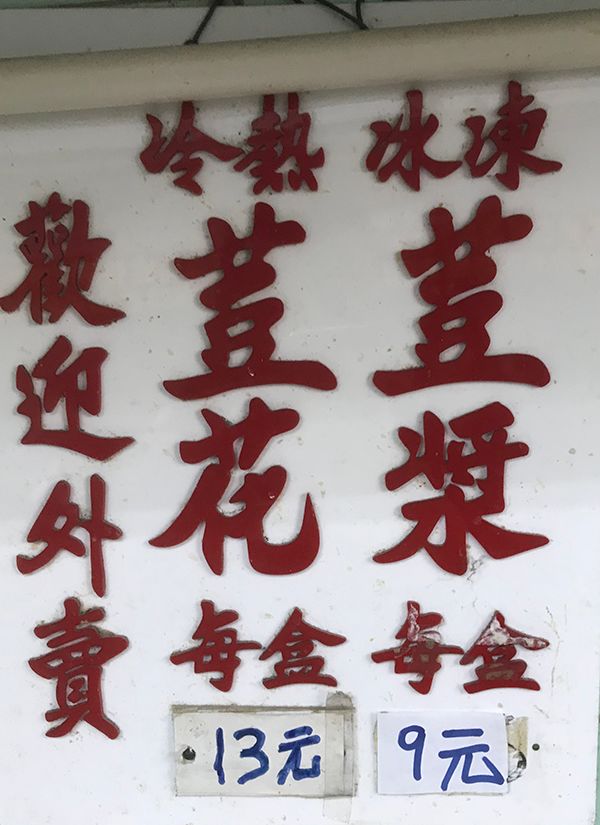 冰凍
荳漿
每盒
9元
冷熱
荳花
每盒
13元
歡迎外賣